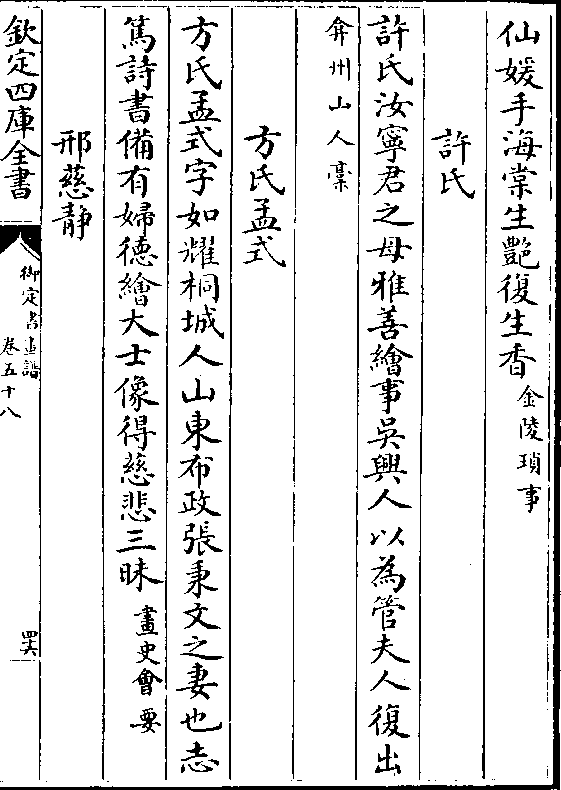 仙媛手海棠生豔復生香金陵瑣事
許氏
許氏汝寧君之母雅善繪事吳興人以為管夫人復出
弇州山人稾
方氏孟式
方氏孟式字如耀桐城人山東布政張秉文之妻也志
篤詩書備有婦德繪大士像得慈悲三昧畫史會要
邢慈静
欽定四庫全書
御定書畫譜
卷五十八
四六